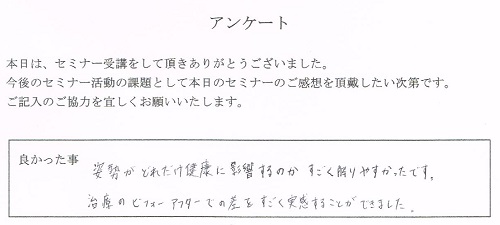 アンケート
本日は、セミナー受講をして頂きありがとうございました。
今後のセミナー活動の課題として本日のセミナーのご感想を頂戴したい次第です。
ご記入のご協力を宜しくお願いいたします。
良かった事
姿勢がどれだけ健康に影響するのか すごく解りやすかったです。
治療のビフォーアフターでの差をすごく実感することができました。